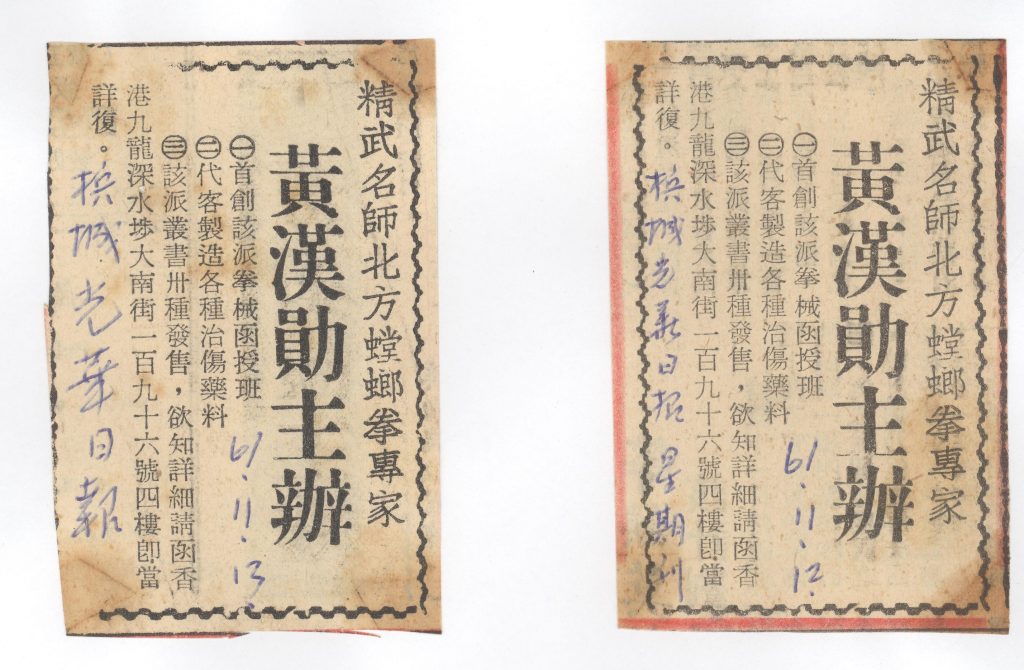 精武名師北方螳螂拳專家
黃漢勛主辦
㊀首創該派拳械函授班
㊁代客製造各種治傷藥料
㊂該派叢書卅種發售，欲知詳細請函香
港九龍深水埗大南街一百九十六號四樓卽當
詳復。
61.11.13.
檳城光華日報
精武名師北方螳螂拳專家
黃漢勛主辦
㊀首創該派拳械函授班
㊁代客製造各種治傷藥料
㊂該派叢書卅種發售，欲知詳細請函香
港九龍深水埗大南街一百九十六號四樓卽當
詳復。
61.11.12.
檳城光華日報星期刊